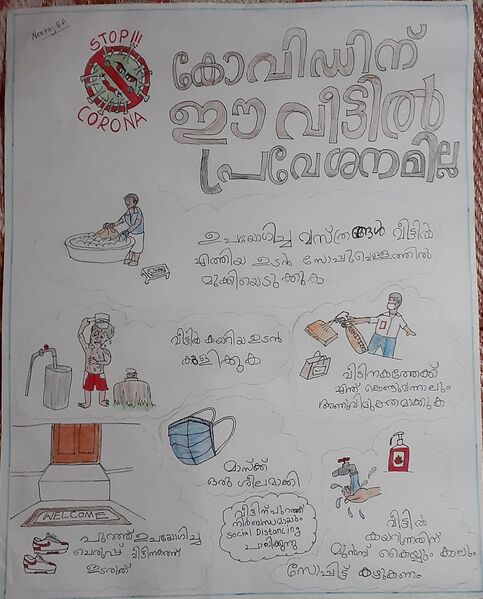 Neeraj.R.A
STOP!!!
CORONA
കോവിഡിന്
ഈ വീട്ടിൽ
പ്രവേശനമില്ല
ഉപയോഗിച്ച വസ്ത്രങ്ങൾ വീട്ടിൽ
എത്തിയ ഉടൻ സോപ്പുവെള്ളത്തിൽ
മുക്കിയെടുക്കുക
വീട്ടിൽ കയറിയ ഉടൻ
കുളിക്കുക
വീടിനകത്തേക്ക്
എന്ത് കൊണ്ടുവന്നാലും
അണുവിമുക്തമാക്കുക
മാസ്ക്ക്
ഒരു ശീലമാക്കി
വീട്ടിന് പുറത്ത്
നിർബന്ധമായും
Social Distancing
പാലിക്കുന്നു
WELCOME
പുറത്ത് ഉപയോഗിച്ച
ചെരുപ്പ് വീട്ടിനകത്ത്
ഇടരുത്
വീട്ടിൽ
കയറുന്നതിന്
മുൻപ് കൈയ്യും കാലും
സോപ്പിട്ട് കഴുകണം